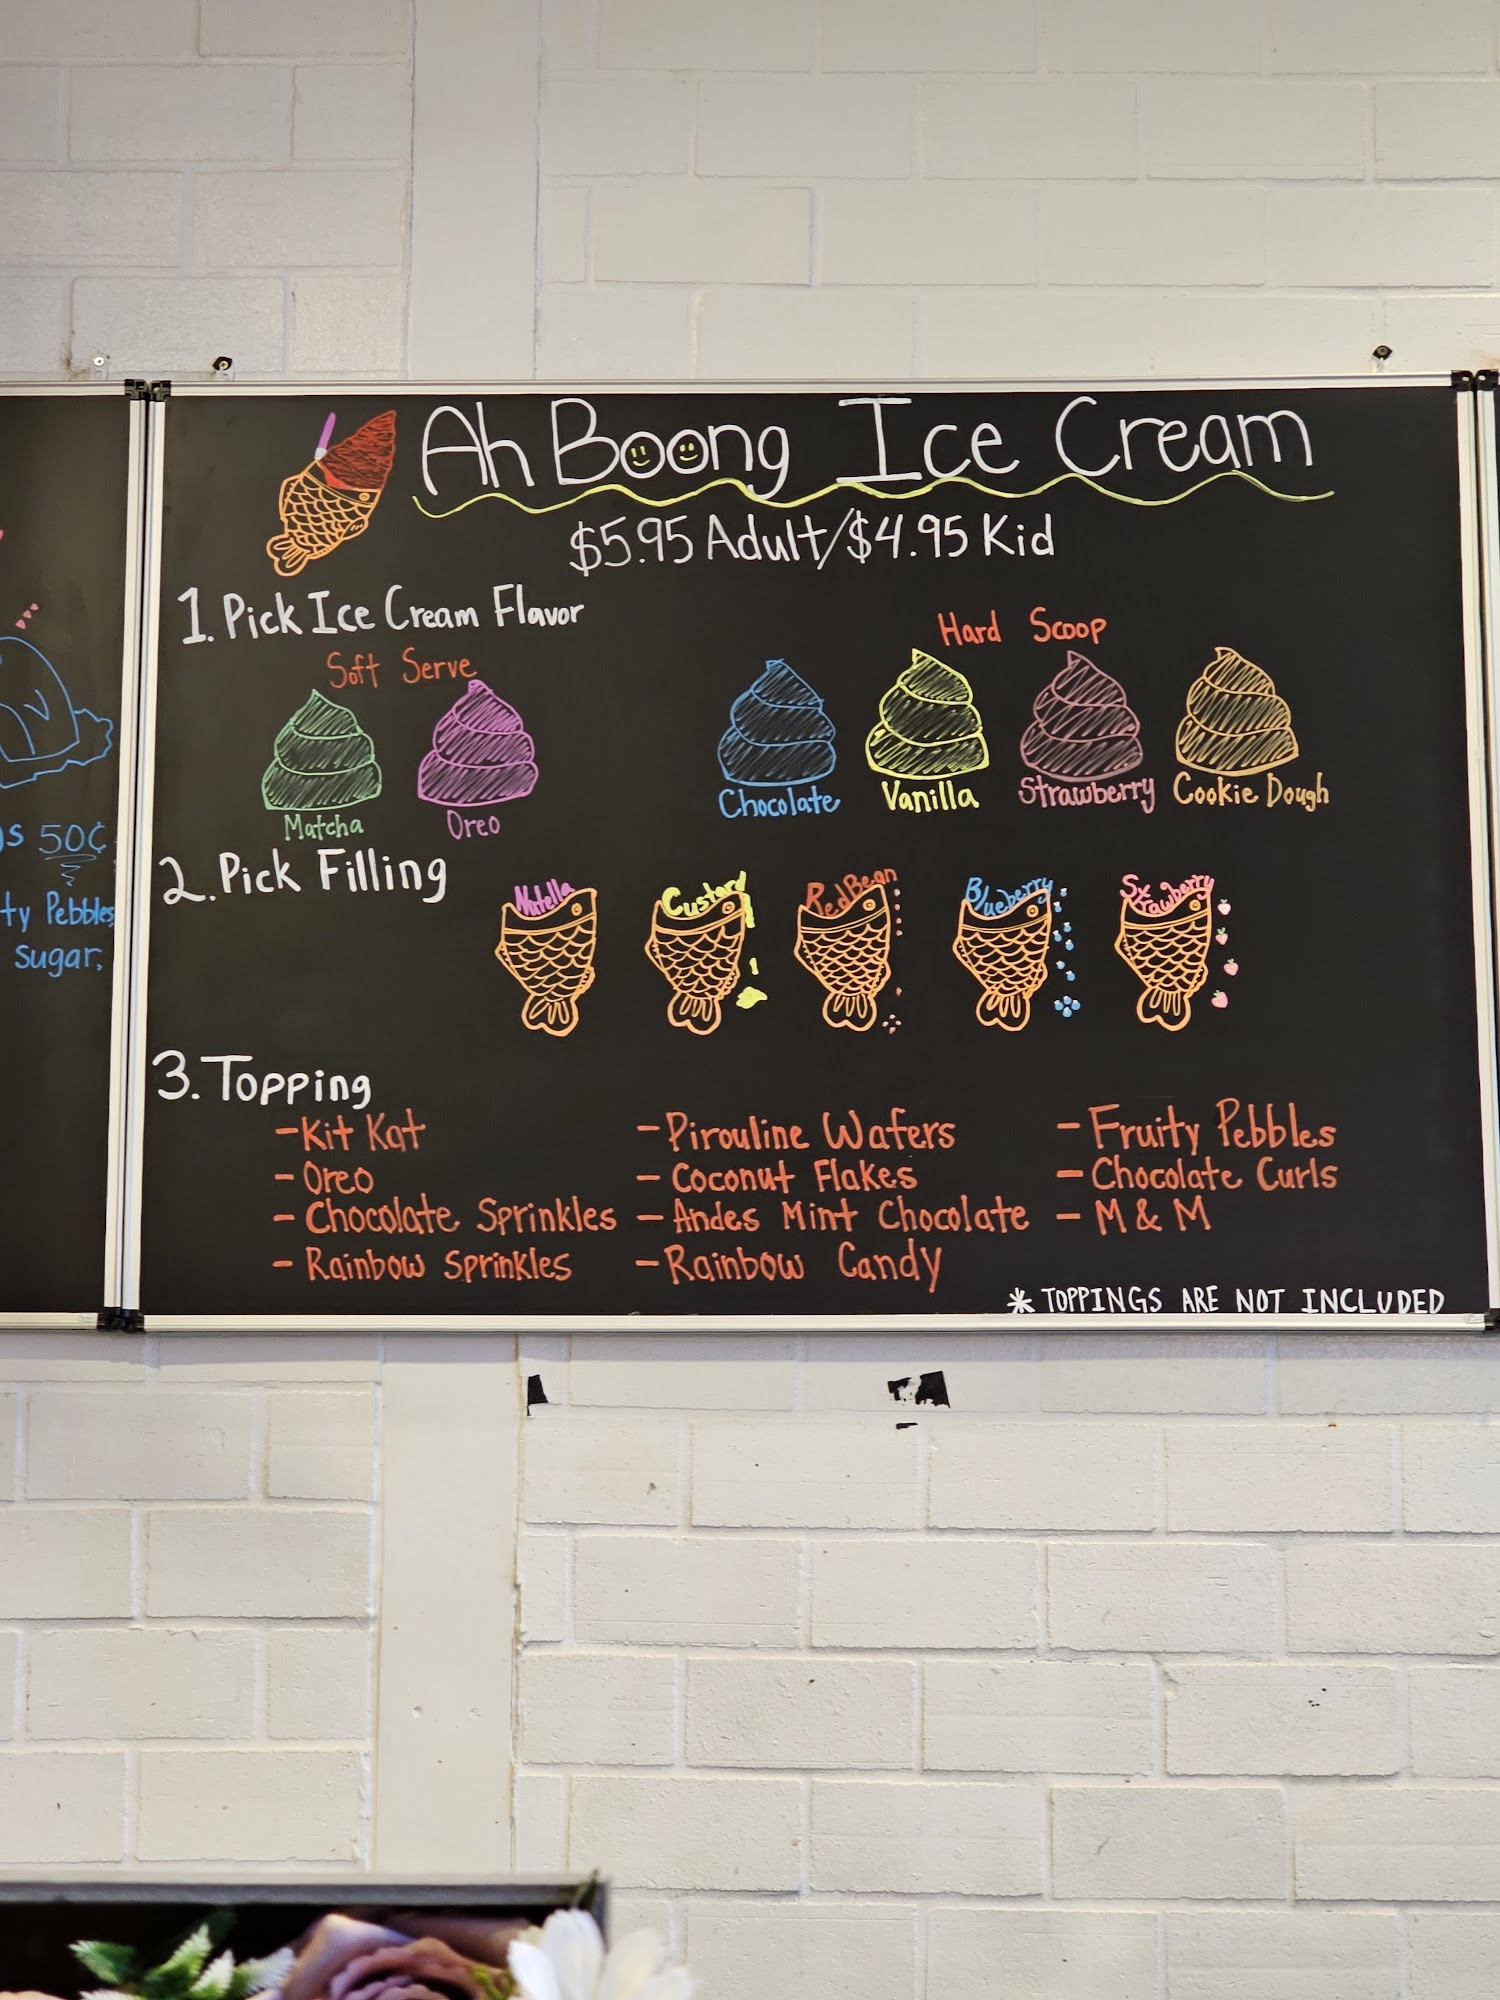 Ah Boong Ice Cream
$5.95 Adult/$4.95 Kid
1. Pick Ice Cream Flavor
Soft Serve
Matcha
Oreo
Hard Scoop
Chocolate
Vanilla
Strawberry
Cookie Dough
2. Pick Filling
Nutella
Custard
Red Bean
Blueberry
Strawberry
3. Topping
- Kit Kat
- Oreo
- Chocolate Sprinkles
- Rainbow Sprinkles
- Pirouline Wafers
- Coconut Flakes
- Andes Mint Chocolate
- Rainbow Candy
- Fruity Pebbles
- Chocolate Curls
- M & M
* TOPPINGS ARE NOT INCLUDED
50¢
Pebbles
sugar,